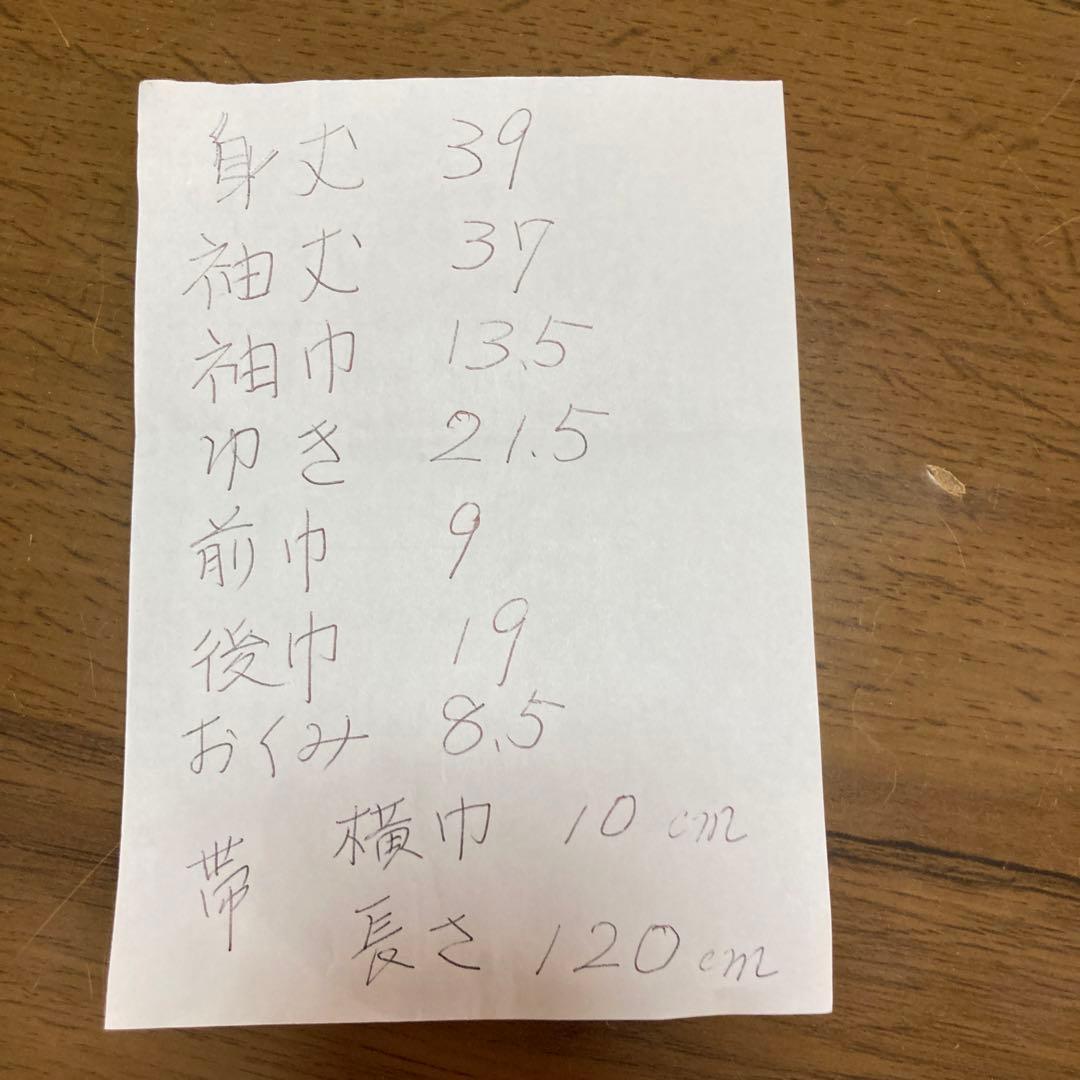 身丈 39
袖丈 37
袖巾 13.5
ゆき 21.5
前巾 9
後巾 19
おくみ 8.5
帯 横巾 10cm
長さ 120cm